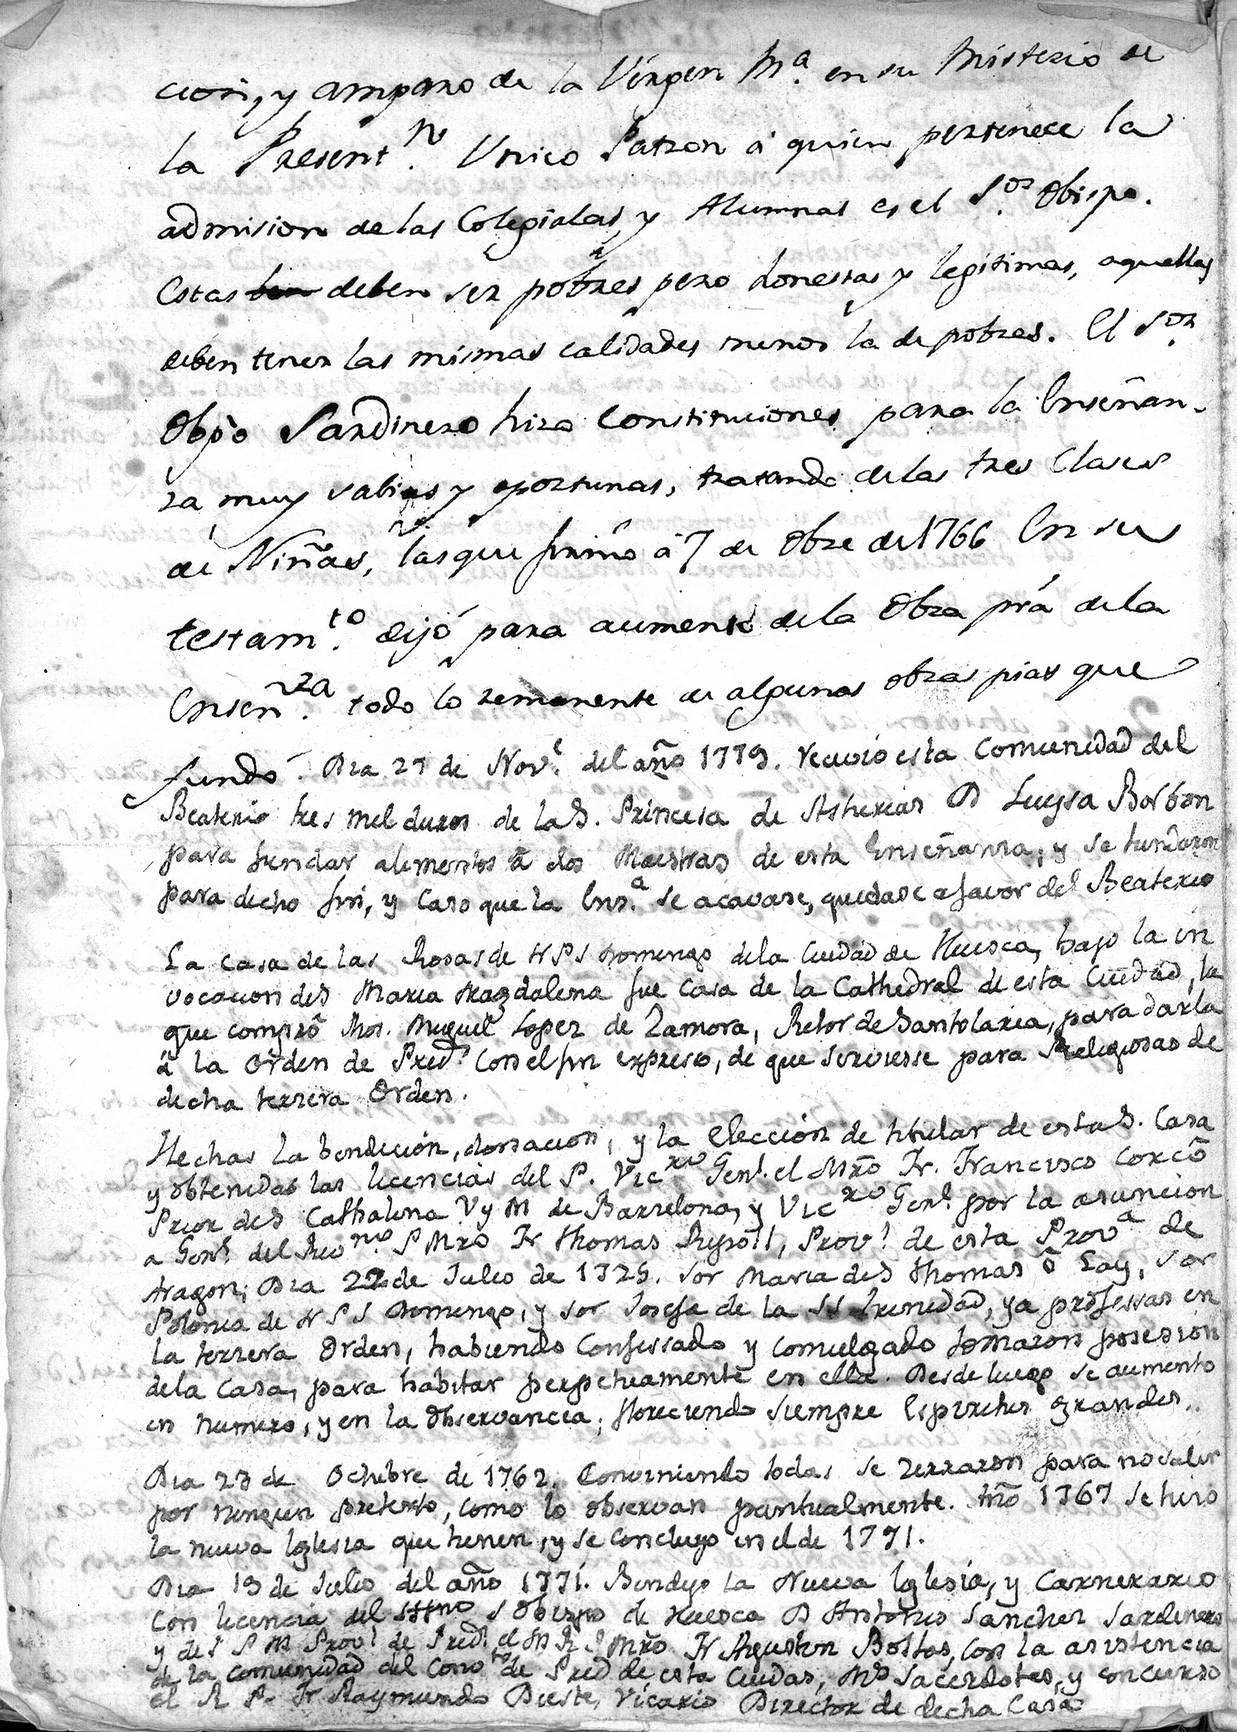 cion, y amparo de la Virgen Mª. en su Misterio de
la Present.n Unico Patron à quien pertenece la
admision de las Colegialas, y Alumnas es el S.or Obispo.
Estas deben ser pobres pero honestas y legitimas, aquellas
deben tener las mismas calidades menos la de pobres. El S.or
Obpo Sardinero hizo Constituciones para la Enseñan-
za muy sabias y oportunas, tratando de las tres Clases
de Niñas, las que firmó à 7 de Obre de 1766 En su
testam.to dejó para aumento de la Obra pia de la
Enseñ.za todo lo remanente de algunas obras pias que
fundó. Dia 27 de Nov.e del año 1779. recivio esta Comunidad del
Beaterio tres mil duros de la S. Princesa de Asturias D Luysa Borbon
para fundar alimentos à dos Maestras de esta Enseñanza, y se fundaron
para dicho fin, y Caso que la Ens.a se acavase, quedase a favor del Beaterio
La casa de las Rosas de N P S Domingo de la Ciudad de Huesca, bajo la in
vocacion de S Maria Magdalena fue Casa de la Cathedral de esta Ciudad, la
que compró Mos. Miguel Lopez de Zamora, Retor de Santolaria, para darla
à la Orden de Pred.s Con el fin expreso, de que sirviesse para Religiosas de
dicha terzera Orden.
Hechas la bendicion, donacion, y la Eleccion de titular de esta S. Casa
y obtenidas las licencias del P. Vic.rio Gen.l el Mro Fr. Francisco Corcò
Prior de S Cathalina V y M de Barzelona, y Vic.rio Gen.l por la asuncion
a Gen.l del Rev.mo P Mro Fr Thomas Ripoll, Prov.l de esta Prov.a de
Aragon; Dia 22 de Julio de 1725. Sor Maria de S Thomas ò Lay, Sor
Polonia de N P S Domingo, y Sor Josefa de la SS trinidad, ya professas en
la terzera Orden, habiendo Confessado y comulgado tomaron posesion
de la Casa, para habitar perpetuamente en ella. Desde luego se aumento
en numero, y en la observancia, floreciendo siempre Espiritus grandes.
Dia 23 de Octubre de 1762. Conviniendo todas se zerraron para no salir
por ningun pretexto, como lo observan puntualmente. Año 1767 se hizo
la nueva Iglesia que tienen, y se concluyo en el de 1771.
Dia 19 de Julio del año 1771. Bendijo la Nueva Iglesia, y Carnerario
Con licencia del Illmo S Obispo de Huesca D Antonio Sanchez Sardinero
y del P M Prov.l de Pred.s el M R P Mro Fr Agustin Bostas, con la asistencia
de la Comunidad del Conv.to de Pred de esta Ciudad, Sacerdotes, y concurso
el R P. Fr. Raymundo Dieste, Vicario Director de dicha Casa